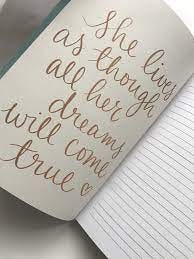 She lives
as though
all her
dreams
will come
true ♡